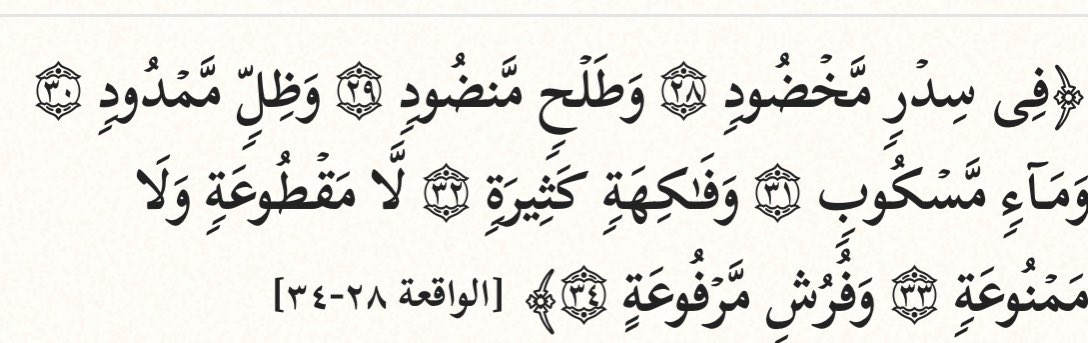 ﴿فِى سِدْرٍ مَّخْضُودٍ ٢٨ وَطَلْحٍ مَّنضُودٍ ٢٩ وَظِلٍّ مَّمْدُودٍ ٣٠
وَمَآءٍ مَّسْكُوبٍ ٣١ وَفَـٰكِهَةٍ كَثِيرَةٍ ٣٢ لَّا مَقْطُوعَةٍ وَلَا
مَمْنُوعَةٍ ٣٣ وَفُرُشٍ مَّرْفُوعَةٍ ٣٤﴾ [الواقعة ٢٨-٣٤]